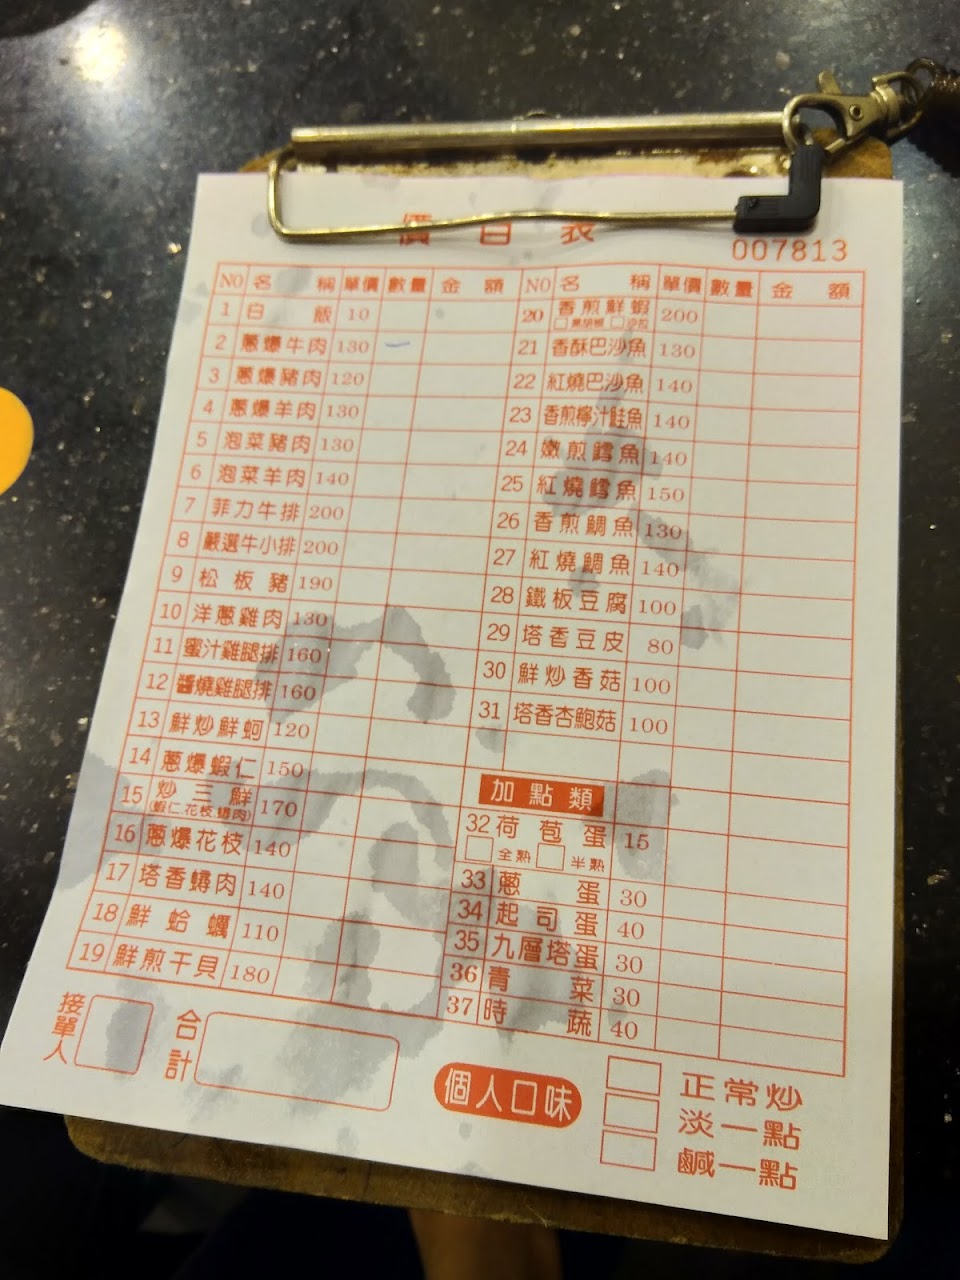 價目表
007813
NO 名稱 單價 數量 金額
1 白飯 10
2 蔥爆牛肉 130 一
3 蔥爆豬肉 120
4 蔥爆羊肉 130
5 泡菜豬肉 130
6 泡菜羊肉 140
7 菲力牛排 200
8 嚴選牛小排 200
9 松板豬 190
10 洋蔥雞肉 130
11 蜜汁雞腿排 160
12 醬燒雞腿排 160
13 鮮炒鮮蚵 120
14 蔥爆蝦仁 150
15 炒三鮮 170
(蝦仁.花枝.蟳肉)
16 蔥爆花枝 140
17 塔香蟳肉 140
18 鮮蛤蠣 110
19 鮮煎干貝 180
NO 名稱 單價 數量 金額
20 香煎鮮蝦 200
□黑胡椒 □沙拉
21 香酥巴沙魚 130
22 紅燒巴沙魚 140
23 香煎檸汁鮭魚 140
24 嫩煎鱈魚 140
25 紅燒鱈魚 150
26 香煎鯛魚 130
27 紅燒鯛魚 140
28 鐵板豆腐 100
29 塔香豆皮 80
30 鮮炒香菇 100
31 塔香杏鮑菇 100
加點類
32 荷苞蛋 15
□全熟 □半熟
33 蔥蛋 30
34 起司蛋 40
35 九層塔蛋 30
36 青菜 30
37 時蔬 40
接單人
合計
個人口味
□ 正常炒
□ 淡一點
□ 鹹一點